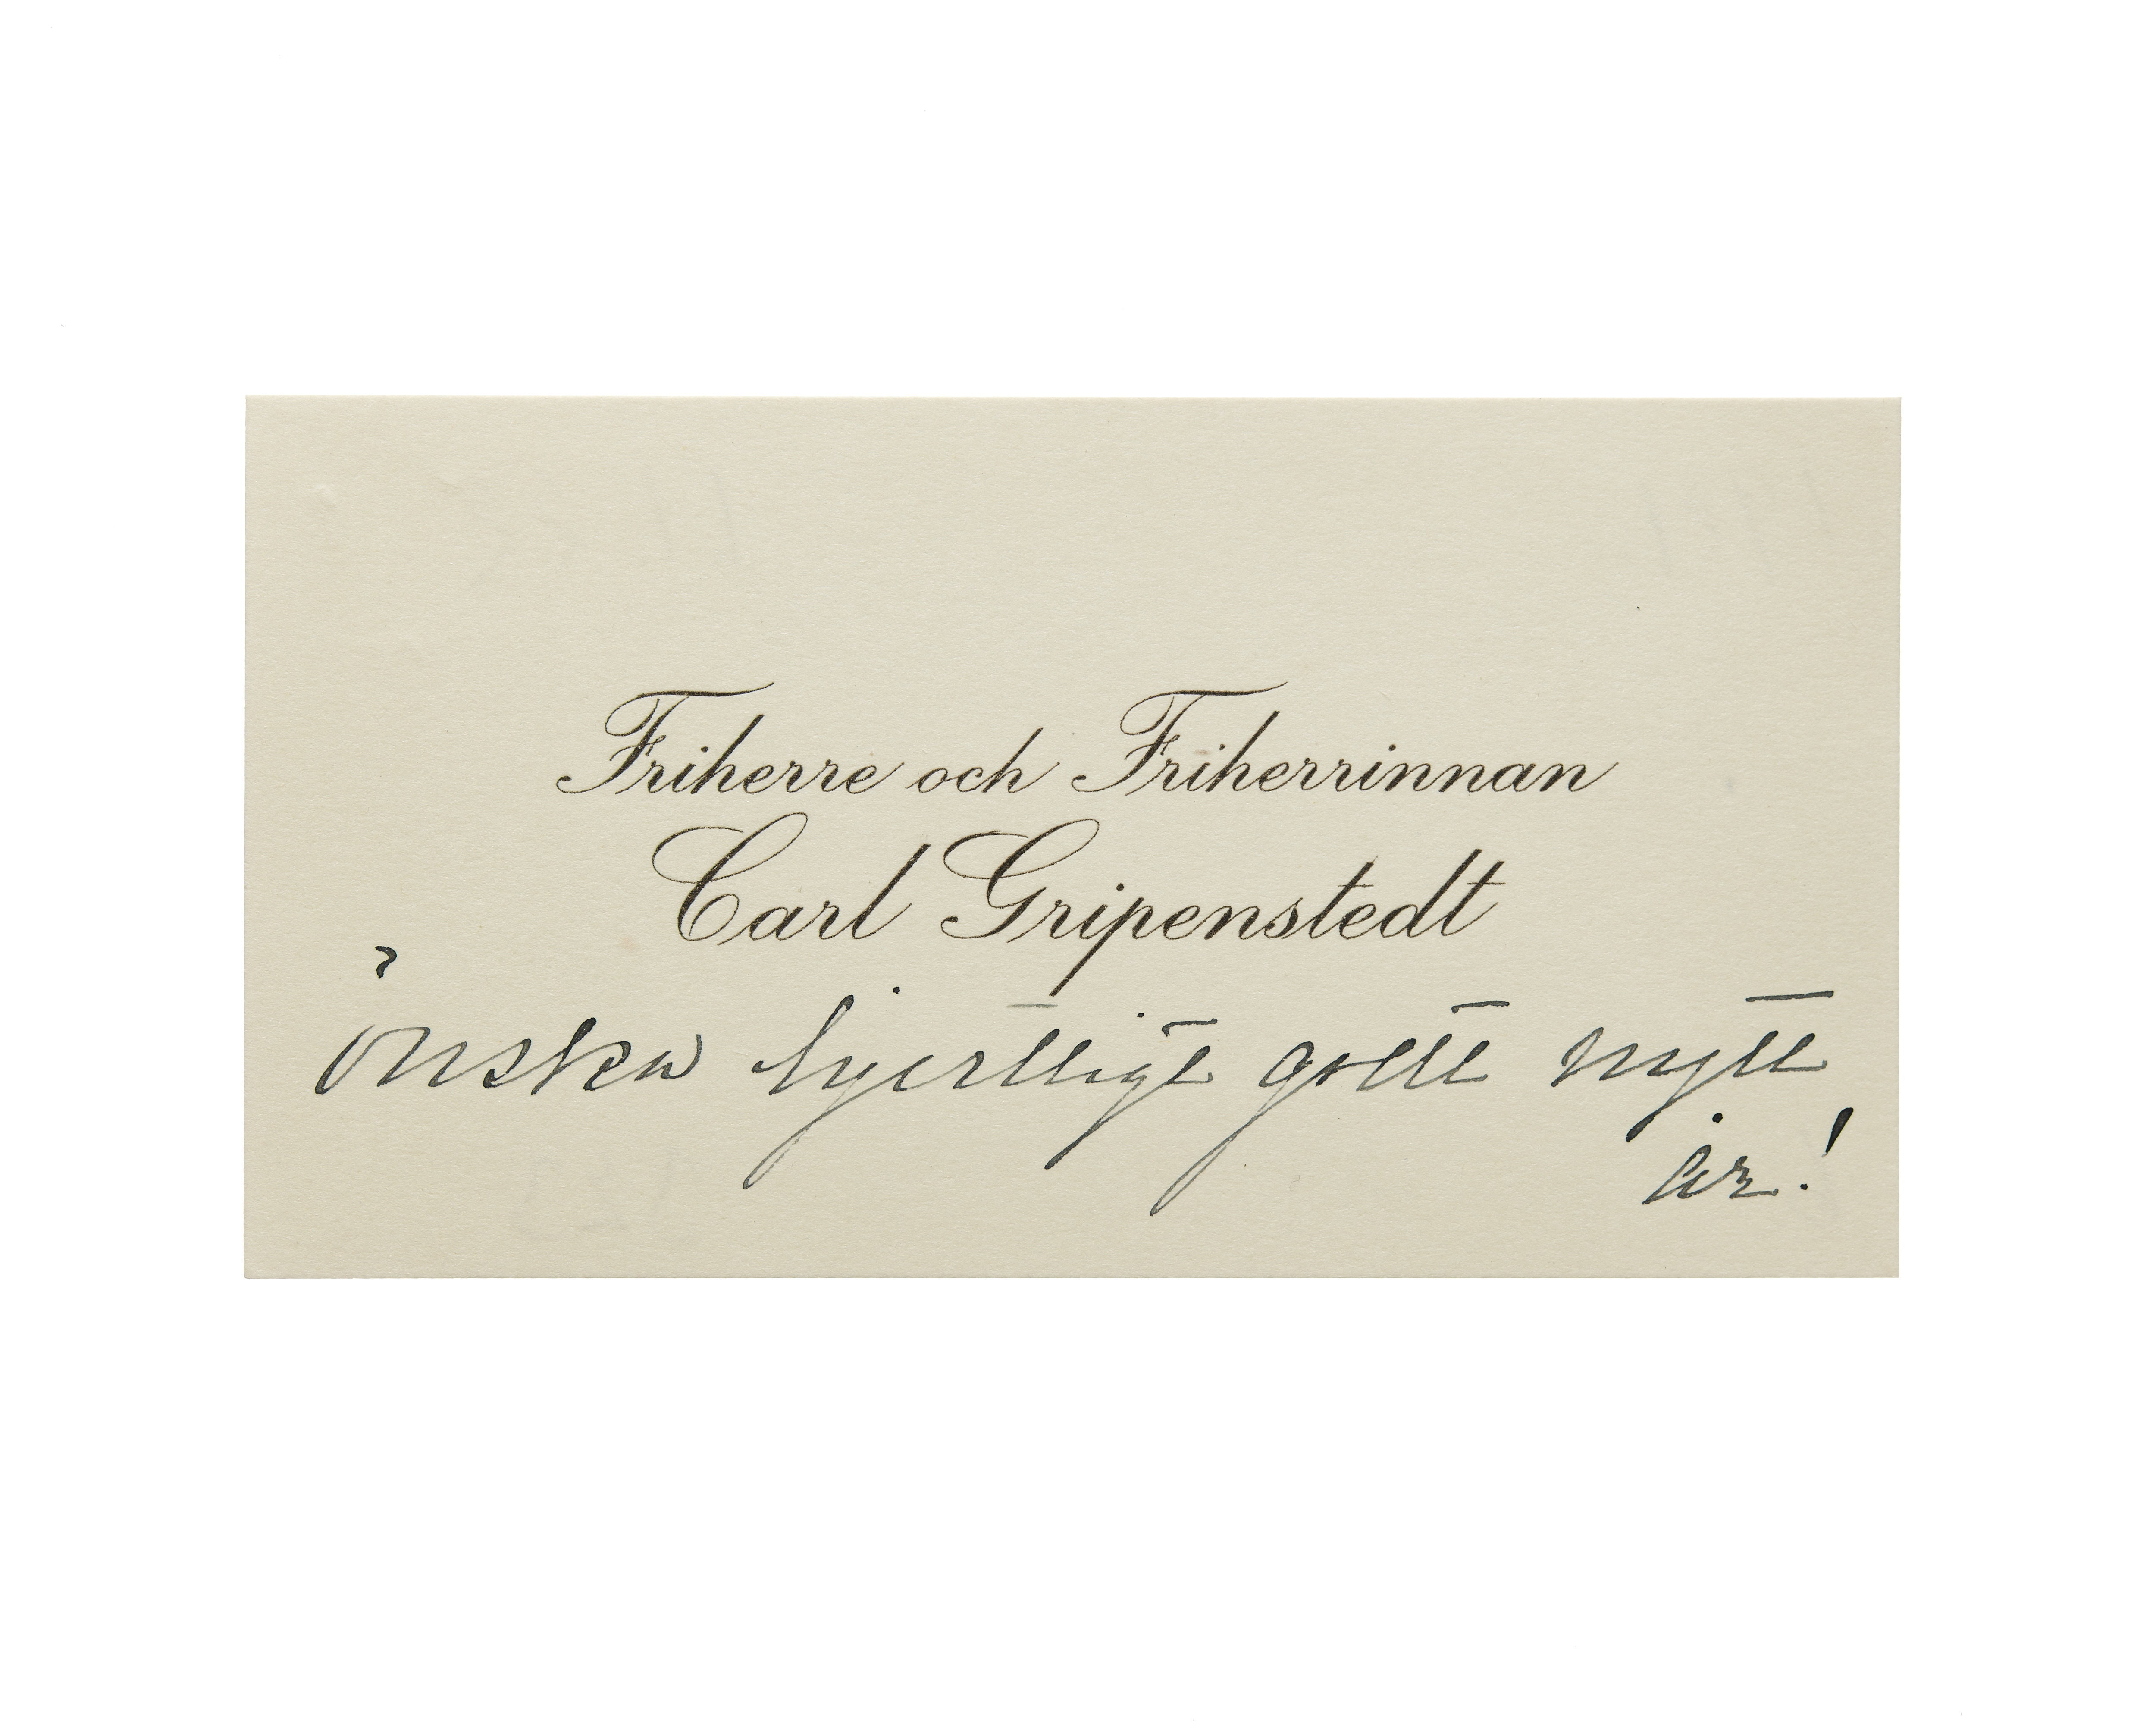 Friherre och Friherrinnan
Carl Gripenstedt
önska hjertligt godt nytt
år!